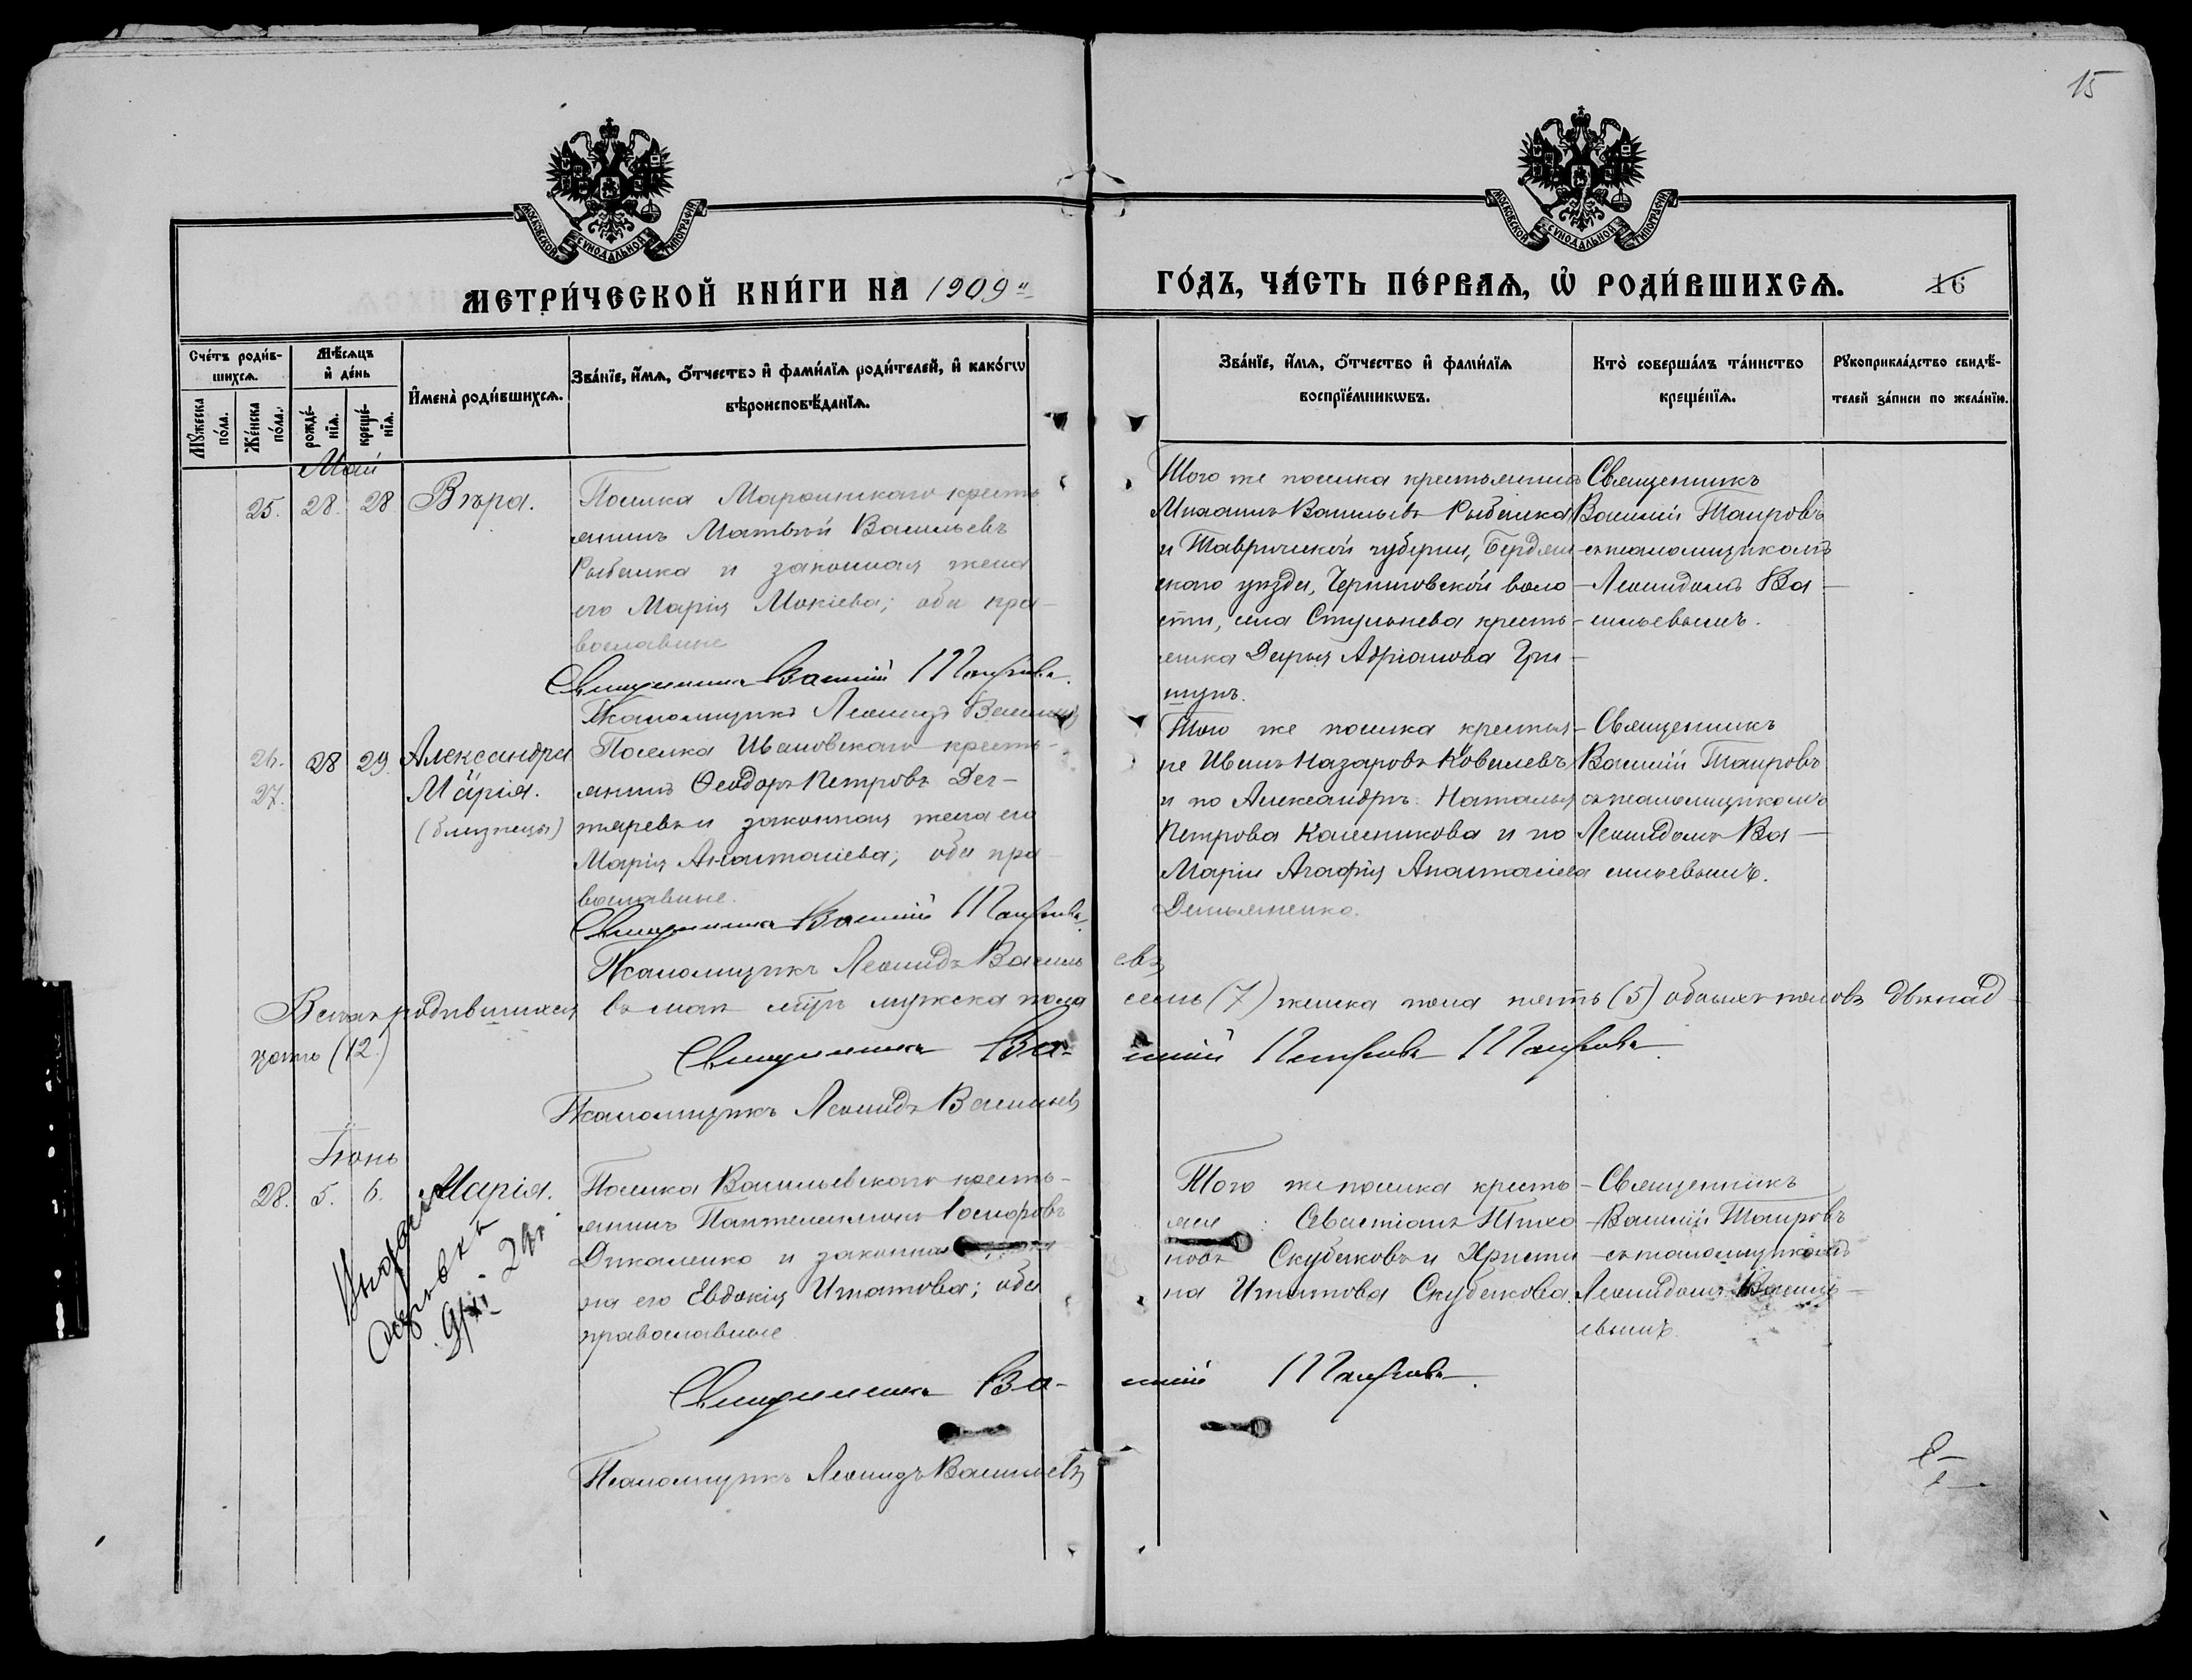 15
МОСКОВСКОЙ СУНОДАЛЬНОЙ ТИПОГРАФІИ
МОСКОВСКОЙ СУНОДАЛЬНОЙ ТИПОГРАФІИ
МЕТРИ́ЧЕСКОЙ КНИ́ГИ НА 1909"
ГО́ДЪ, ЧА́СТЬ ПЕ́РВАѦ, Ѡ҆ РОДИ́ВШИХСѦ.
16
Сче́тъ роди́в-
шихсѧ.
Мѣ́сѧцъ
и҆ де́нь
Мꙋ́жеска
по́ла.
Же́нска
по́ла.
рожде́-
нїѧ.
креще́-
нїѧ.
И҆мена̀ роди́вшихсѧ.
Зва́нїе, и҆́мѧ, ѻ҆́тчество и҆ фами́лїѧ роди́телей, и҆ како́гѡ
вѣроисповѣ́данїѧ.
Зва́нїе, и҆́мѧ, ѻ҆́тчество и҆ фами́лїѧ
воспрїе́мникѡвъ.
Кто̀ соверша́лъ та́инство
креще́нїѧ.
Рꙋкоприкла́дство свидѣ́-
телей за́писи по жела́нїю.
Май
25. 28. 28 Вѣра.
Поселка Мароинскаго кресть
янинъ Матвѣй Васильевъ
Рыбалка и законная жена
его Марія Мокіева; оба пра-
вославные
Священникъ Василій Таировъ.
Псаломщикъ Леонидъ Васильевъ
Того же поселка крестьянинъ
Васильевъ Рыбалка
и Таврической губерніи, Бердян
скаго уѣзда, Черниговской воло-
сти, села Стульнева кресть-
янка Дарья Адріанова Гри-
щунъ.
Священникъ
Василій Таировъ
съ псаломщикомъ
Леонидомъ Ва-
сильевымъ.
26. 28 29 Александра
27. Марія.
(близнецы)
Поселка Ивановскаго кресть-
янинъ Ѳеодоръ Петровъ Дег-
таревъ и законная жена его
Марія Анастасіева; оба пра-
вославные.
Священникъ Василій Таировъ.
Псаломщикъ Леонидъ Васильевъ
Того же поселка крестья-
не Иванъ Назаровъ Ковалевъ
и по Александрѣ Наталья
Петрова Калесникова и по
Маріи Агафія Анастасіева
Демьяненко.
Священникъ
Василій Таировъ
съ псаломщикомъ
Леонидомъ Ва-
сильевымъ.
Всѣхъ родившихся въ маѣ мцѣ мужска пола семь (7) женска пола пять (5) обоихъ половъ двѣнад-
цать (12.)
Священникъ Василій Петровъ Таировъ.
Псаломщикъ Леонидъ Васильевъ
Іюнь
28. 5. 6. Марія.
Поселка Васильевскаго кресть-
янинъ Пантелеимонъ Іосифовъ
Дикаленко и законная
на его Евдокія Игнатова; оба
православные
Того же поселка кресть-
яне: Севастіанъ Тихо-
новъ Скубаковъ и Христи-
на Игнатова Скубакова.
Священникъ
Василій Таировъ
съ псаломщикомъ
Леонидомъ Василь-
евымъ.
Священникъ Василій Таировъ.
Псаломщикъ Леонидъ Васильевъ